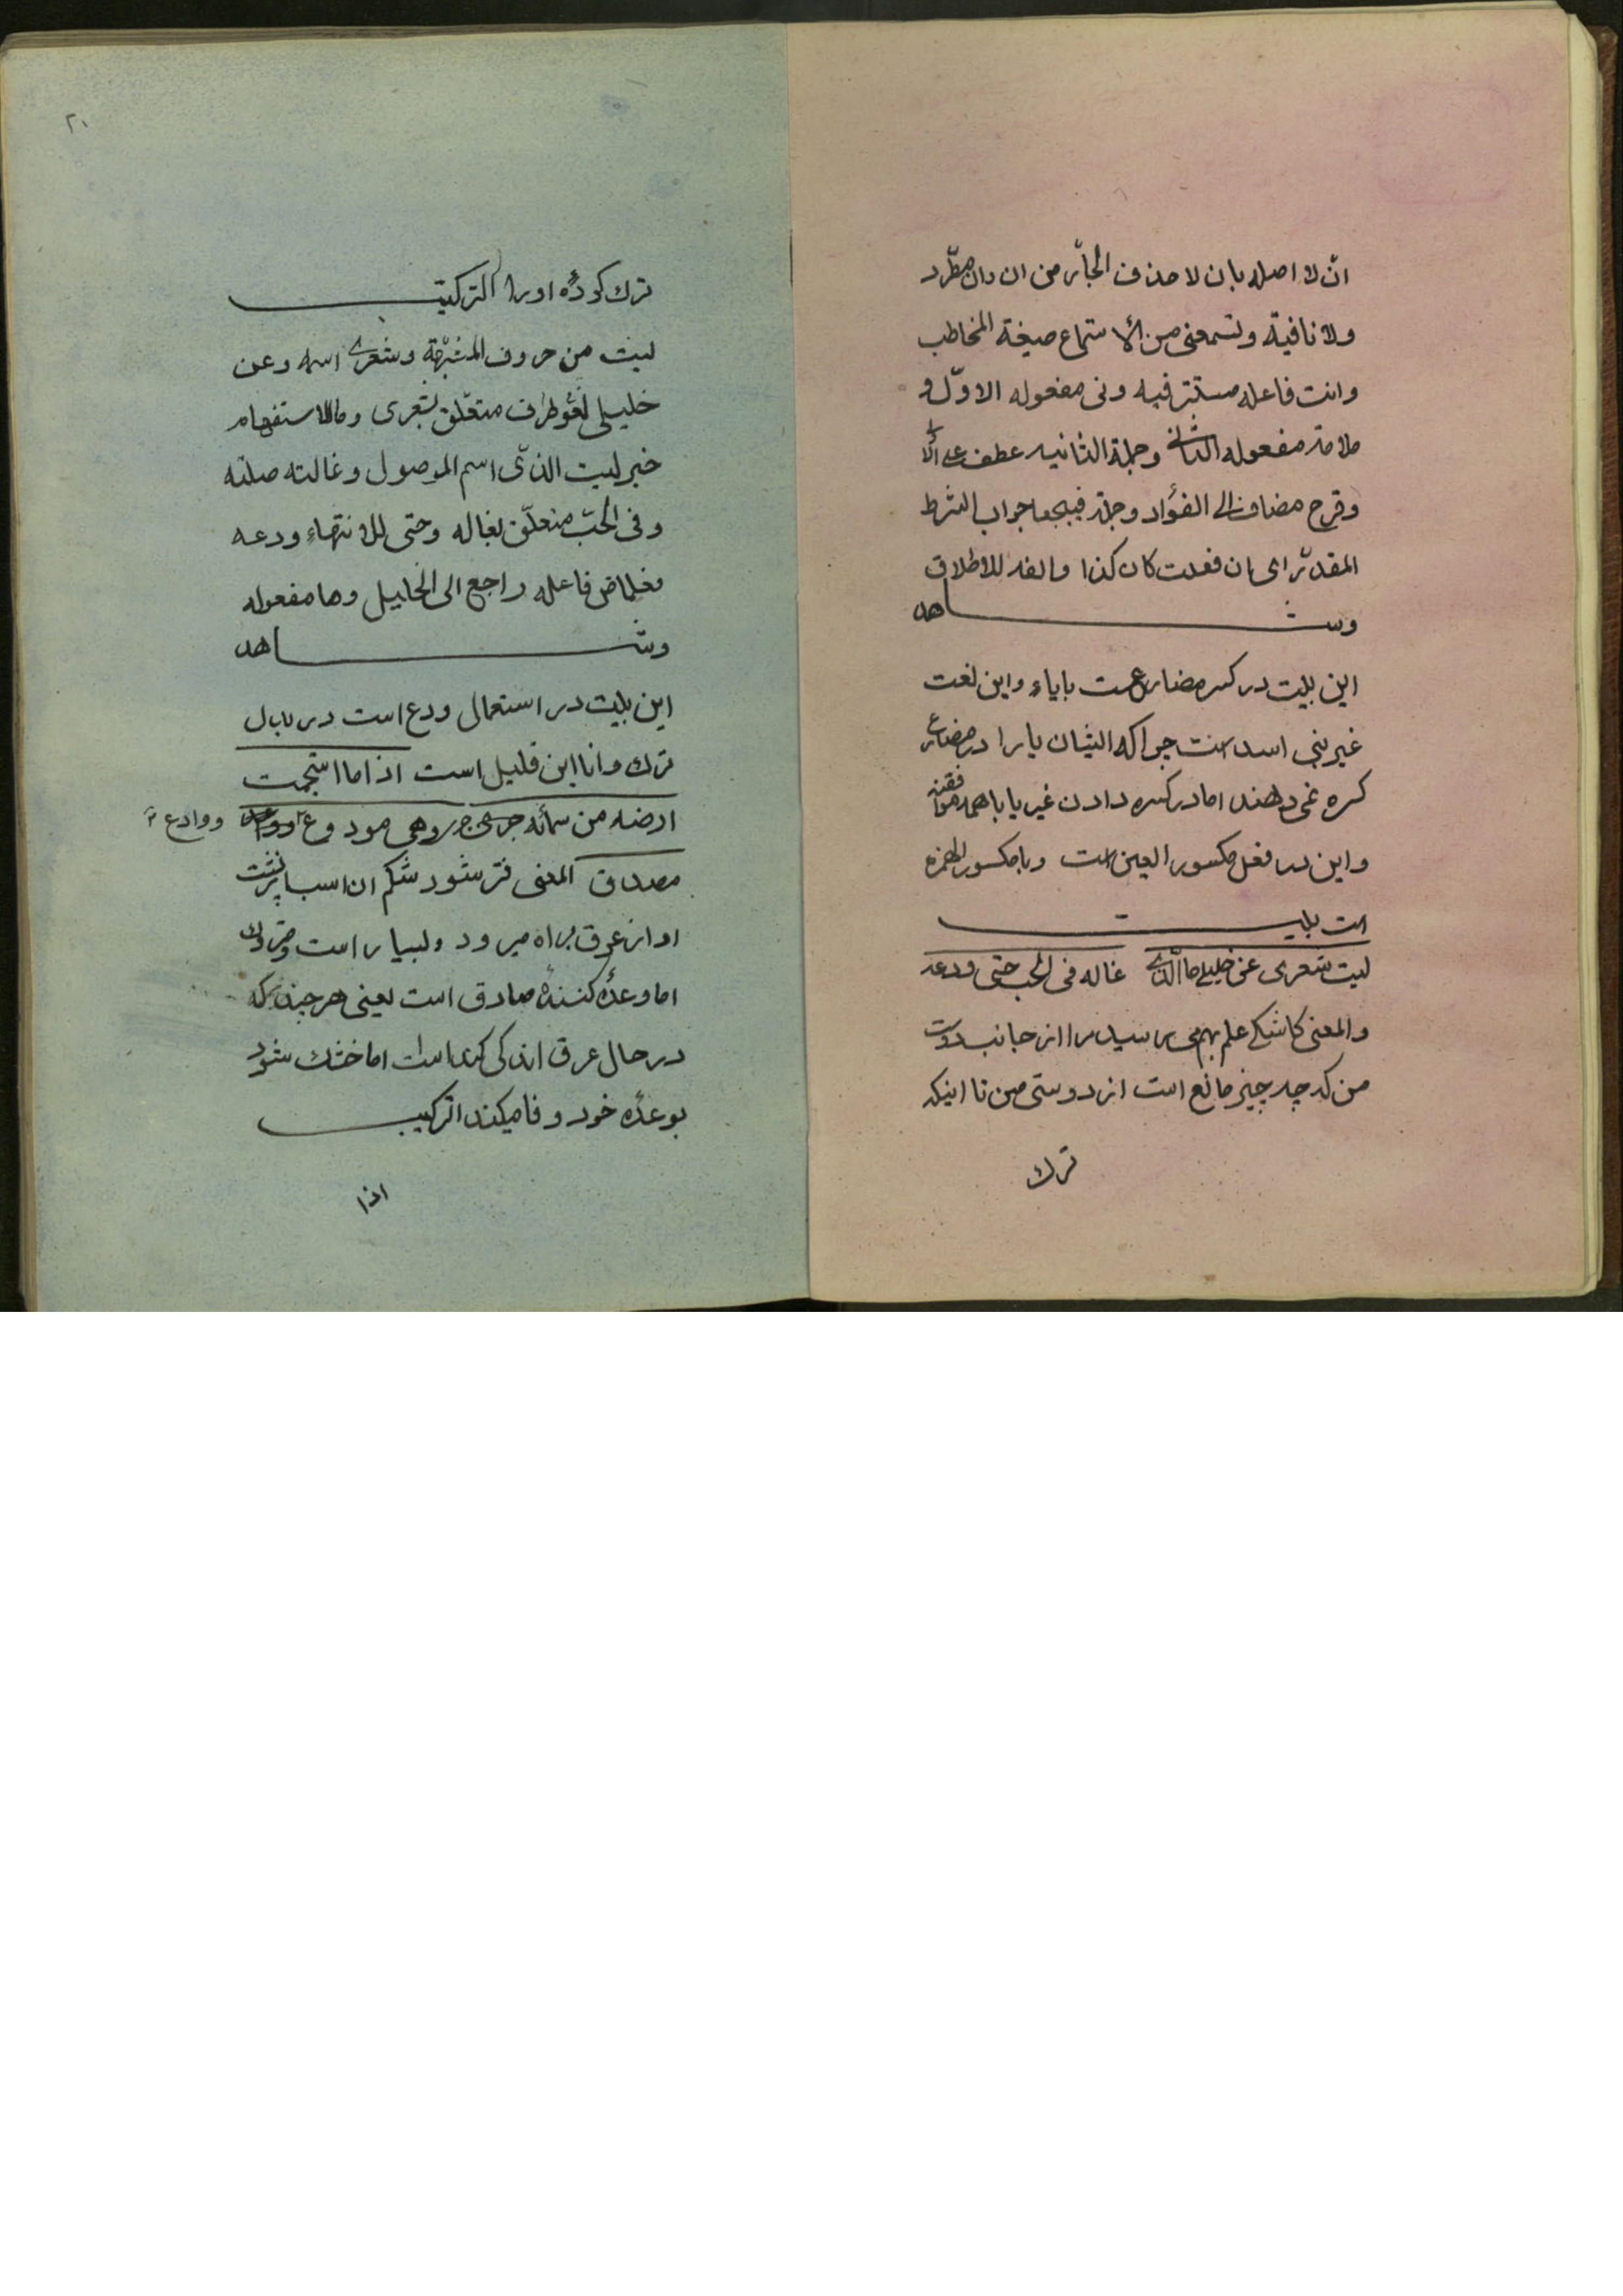 ان لا اصله بان لا حذف الجارّ من ان وان مطّرد
ولا نافية وتسمعنى من الاستماع صيغة المخاطب
وانت فاعله مستتر فيه ونى مفعوله الاوّل و
ملامة مفعوله الثانى وجملة الثانيه عطف على الا
وقرح مضاف الى الفؤاد وجملة فييجعا جواب الشرط
المقدّر اى ان فعلت كان كذا والفه للاطلاق
وشاهد
اين بيت در كسر مضارعست باياء واين لغت
غير بنى اسد است چرا كه ايشان يا را در مضارع
كسره نمى دهند اما در كسره دادن غير يا با همه موافقند
واين در فعل مكسور العين است ويا مكسور الهمزه
است بيت
ليت شعرى عن خليلى ما الذى غاله فى الحب حتى ودعه
والمعنى كاشكى علم بهم مى رسيد مرا از جانب دوست
من كه چه چيز مانع است از دوستى من تا اينكه
ترك
٢٠
ترك كرده او را التركيب
ليت من حروف المشبّهة وشعرى اسمه وعن
خليلى لغو ظرف متعلّق بشعرى وما للاستفهام
خبر ليت الذى اسم الموصول وغالته صلته
وفى الحبّ متعلّق بغاله وحتى للانتهاء ودعه
فعل ماض فاعله راجع الى الخليل وها مفعوله
وشاهد
اين بيت در استعمال ودع است در بدل
ترك وانا اين قليل است اذا ما استحمت
ارضه من سمائه جرى وهو مودوع وواعد
ووادع
مصداق المعنى تر شود شكم ان اسب از پشت
او از عرق براه ميرود وبسيار است ومتروك
اما وعده كننده صادق است يعنى هر چند كه
در حال عرق اندكى است اما خشك شود
بوعده خود وفا ميكند التركيب
اذا